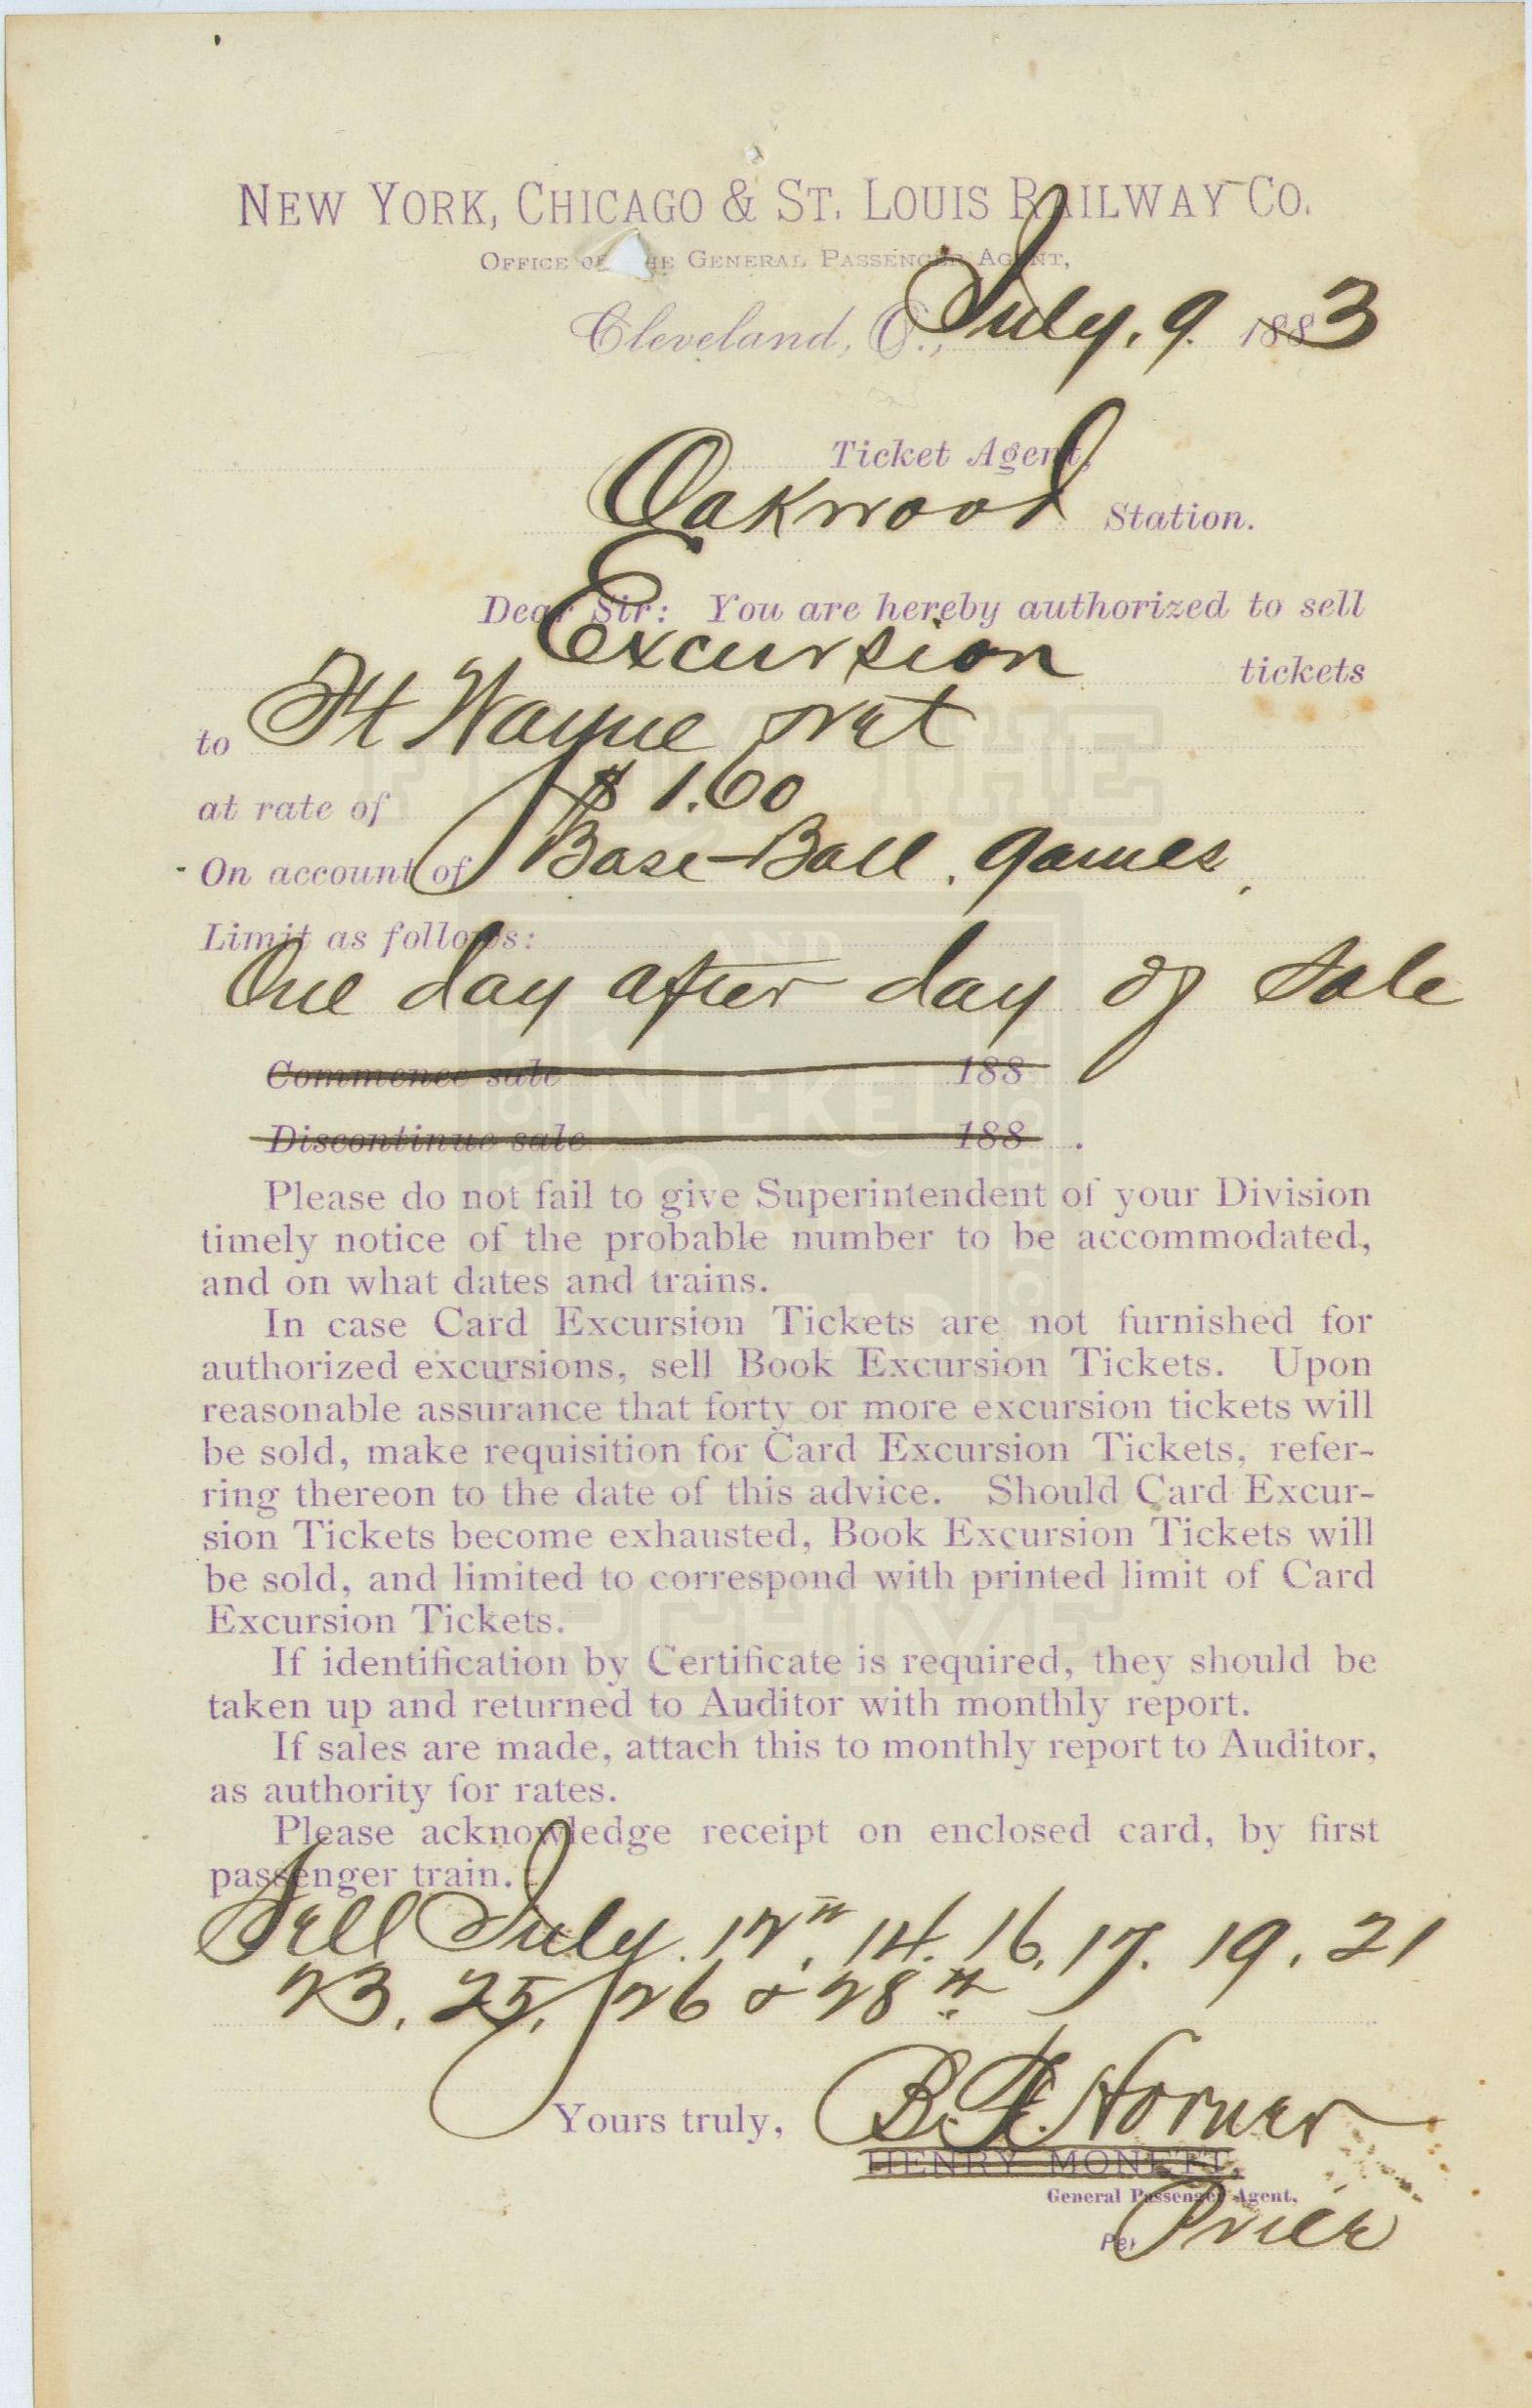 NEW YORK, CHICAGO & ST. LOUIS RAILWAY CO.
OFFICE OF THE GENERAL PASSENGER AGENT,
Cleveland, O., July. 9. 1883
Ticket Agent,
Oakwood Station.
Dear Sir: You are hereby authorized to sell
Excursion tickets
to Ft Wayne ret
at rate of $1.60
On account of Base-Ball. games.
Limit as follows:
One day after day of sale
Commence sale 188
Discontinue sale 188 .
Please do not fail to give Superintendent of your Division
timely notice of the probable number to be accommodated,
and on what dates and trains.
In case Card Excursion Tickets are not furnished for
authorized excursions, sell Book Excursion Tickets. Upon
reasonable assurance that forty or more excursion tickets will
be sold, make requisition for Card Excursion Tickets, refer-
ring thereon to the date of this advice. Should Card Excur-
sion Tickets become exhausted, Book Excursion Tickets will
be sold, and limited to correspond with printed limit of Card
Excursion Tickets.
If identification by Certificate is required, they should be
taken up and returned to Auditor with monthly report.
If sales are made, attach this to monthly report to Auditor,
as authority for rates.
Please acknowledge receipt on enclosed card, by first
passenger train.
Sell July. 12th, 14. 16. 17. 19. 21
23. 25. 26 & 28th
Yours truly, B. F. Horner
HENRY MONETT,
General Passenger Agent.
Per Price